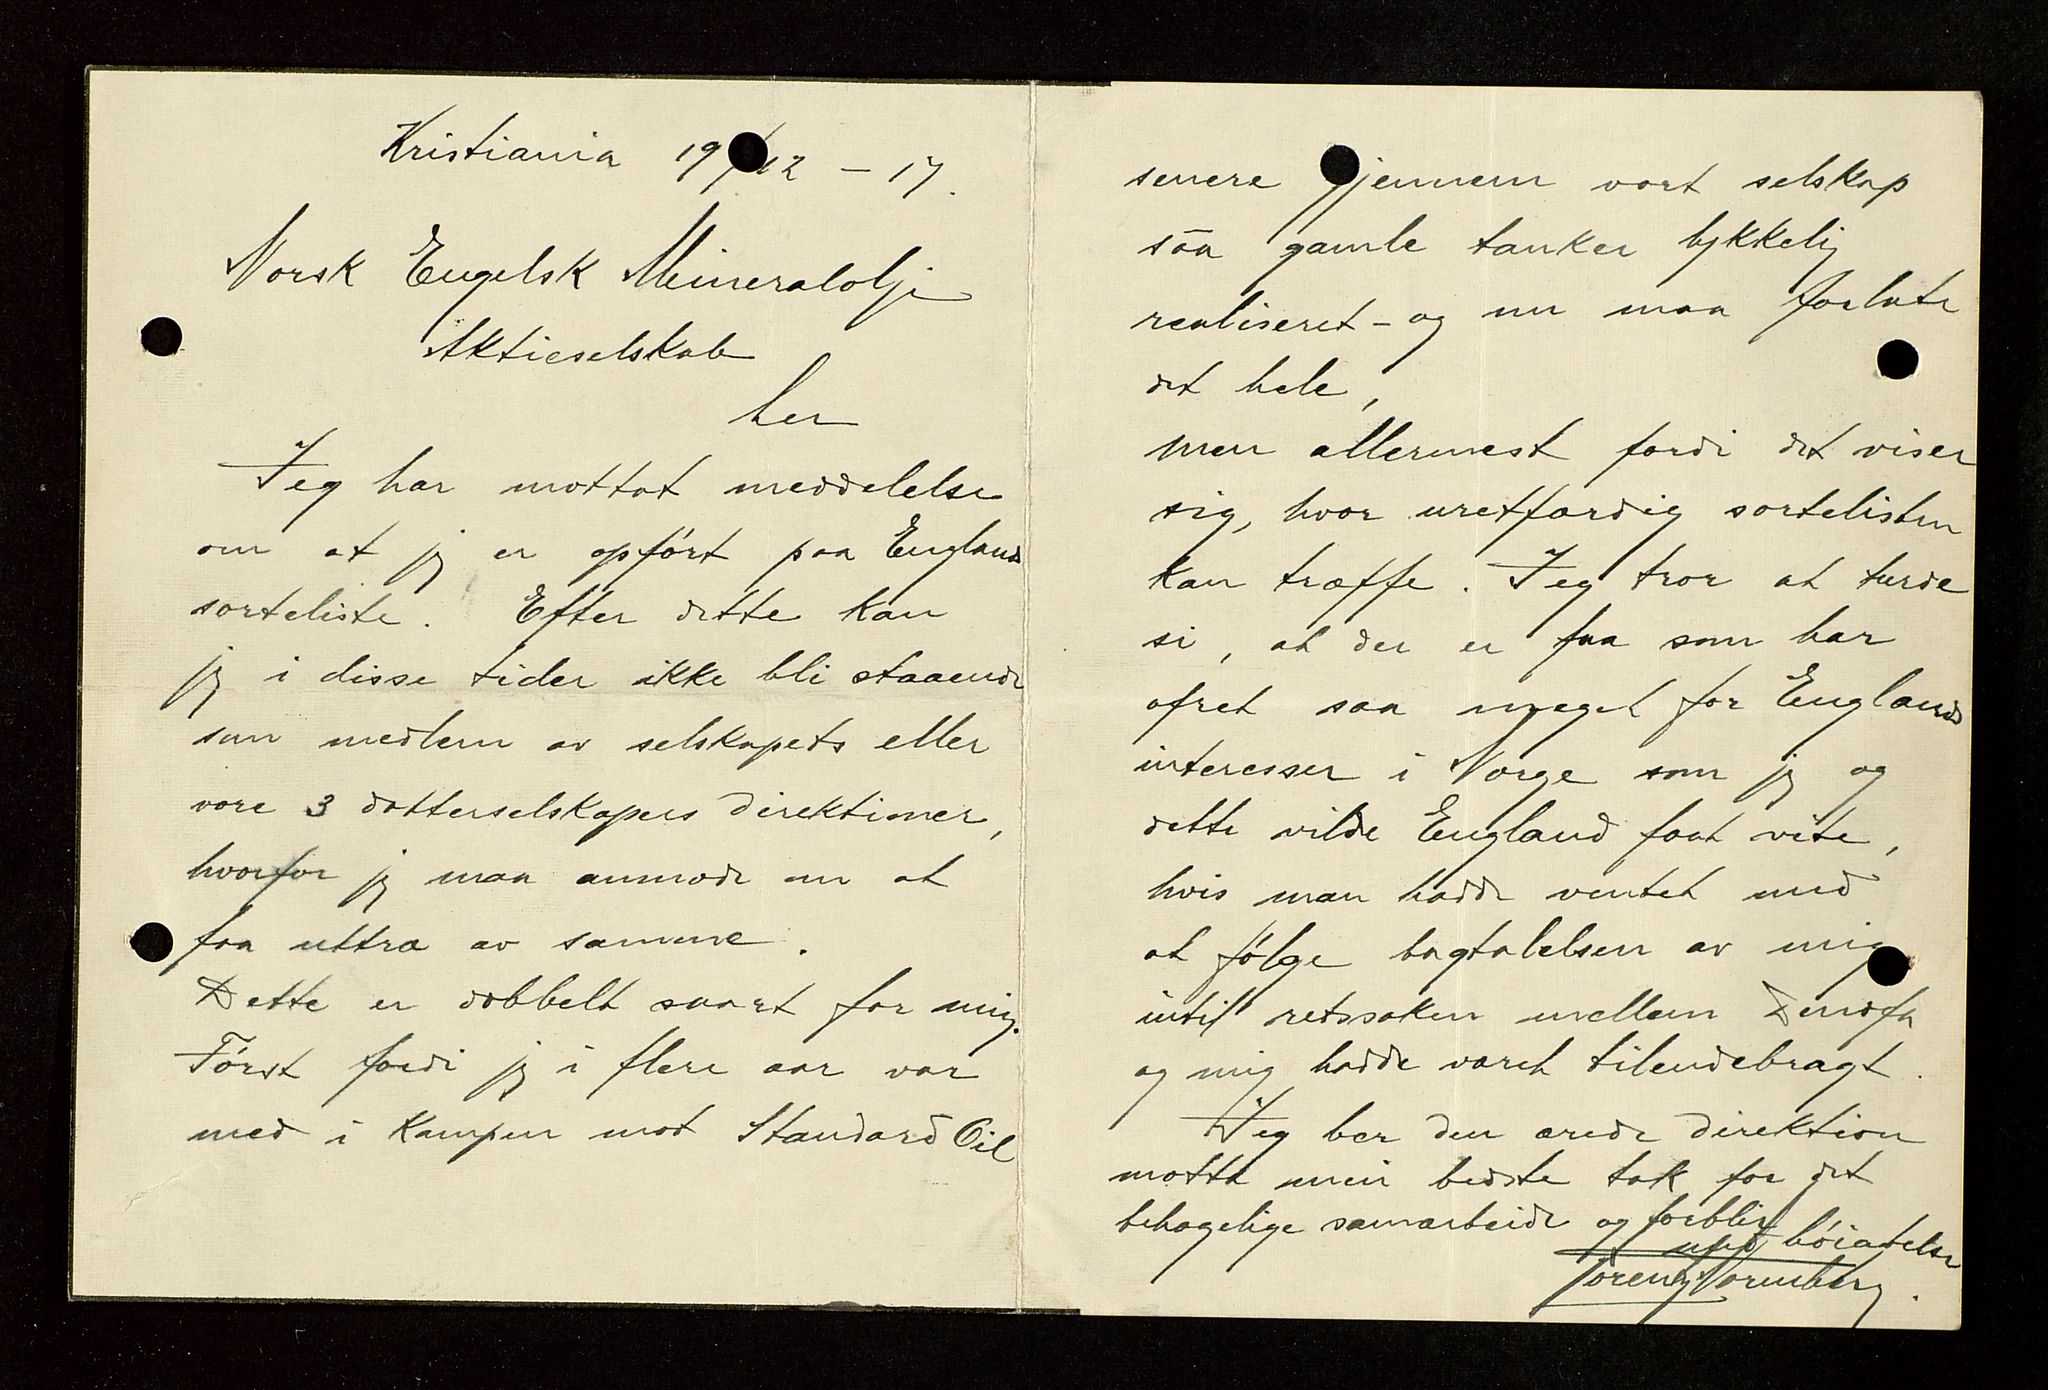 Kristiania 19/12 – 17.
Norsk Engelsk Mineralolje
Aktieselskab
her
Jeg har mottat meddelelse
om at jeg er opført paa Englands
sorteliste. Efter dette kan
jeg i disse tider ikke bli staaende
som medlem av selskapets eller
vore 3 datterselskapers direktioner,
hvorfor jeg maa anmode om at
faa uttræ av samme.
Dette er dobbelt saart for mig.
Først fordi jeg i flere aar var
med i kampen mot Standard Oil
senere gjennem vort selskap
saa gamle tanker lykkelig
realiseret – og nu maa forlate
det hele,
men allermest fordi det viser
sig, hvor uretfærdig sortelisten
kan træffe. Jeg tror at turde
si, at der er faa som har
ofret saa meget for Englands
interesser i Norge som jeg og
dette vilde England faat vite,
hvis man hadde ventet med
at følge bagtalelsen av mig
intil retssaken mellem
og mig hadde været tilendebragt.
Jeg ber den ærede direktion
motta min bedste tak for det
behagelige samarbeide og forblir
med høiagtelse